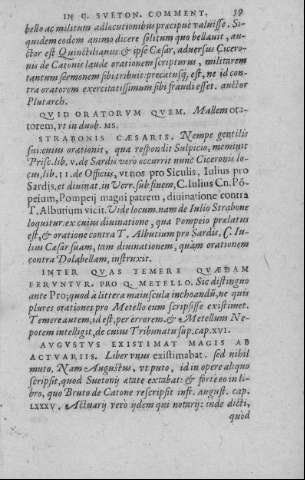 IN C. SVETON. COMMENT. 39
bello ac militum adlocutionibus præcipue valuisse. Si-
quidem eodem animo dicere solitum quo bellauit, au-
ctor est Quinctilianus: & ipse Cæsar, aduersus Cicero-
nis de Catonis laude orationem scripturus, militarem
tantum sermonem sibi tribui: precatusq̃, est, ne id con-
tra oratorem exercitatissimum sibi fraudi esset. auctor
Plutarch.
QVID ORATORVM QVEM. Mallem ora-
torem, vt in duob. MS.
STRABONIS CÆSARIS. Nempe gentilis
sui: cuius orationis, qua respondit Sulpicio, meminit
Prisc. lib. V. de Sardis vero occurrit nunc Ciceronis lo-
cus, lib. II. de Officiis, vt nos pro Siculis, Iulius pro
Sardis. et diuinat. in Verr. sub finem, C. Iulius Cn. Põ-
peium, Pompeij magni patrem, diuinatione contra
T. Albutium vicit. Vide locum. nam de Iulio Strabone
loquitur. ex cuius diuinatione, qua Pompeio prælatus
est, & oratione contra T. Albutium pro Sardis, C. Iu-
lius Cæsar suam, tam diuinationem, quàm orationem
contra Dolabellam, instruxit.
INTER QVAS TEMERE QVÆDAM
FERVNTVR. PRO Q. METELLO. Sic distinguo
ante Pro; quod a littera maiuscula inchoandũ, ne quis
plures orationes pro Metello eum scripsisse existimet.
Temere autem, id est, per errorem, & Metellum Ne-
potem intelligit, de cuius Tribunatu sup. cap. XVI.
AVGVSTVS EXISTIMAT MAGIS AB
ACTVARIIS. Liber vnus existimabat. sed nihil
muto. Nam Augustus, vt puto, id in opere aliquo
scripsit, quod Suetonij ætate extabat: & forte eo in li-
bro, quo Bruto de Catone rescripsit infr. august. cap.
LXXXV. Actuarij verò ijdem qui notarij: inde dicti,
quod